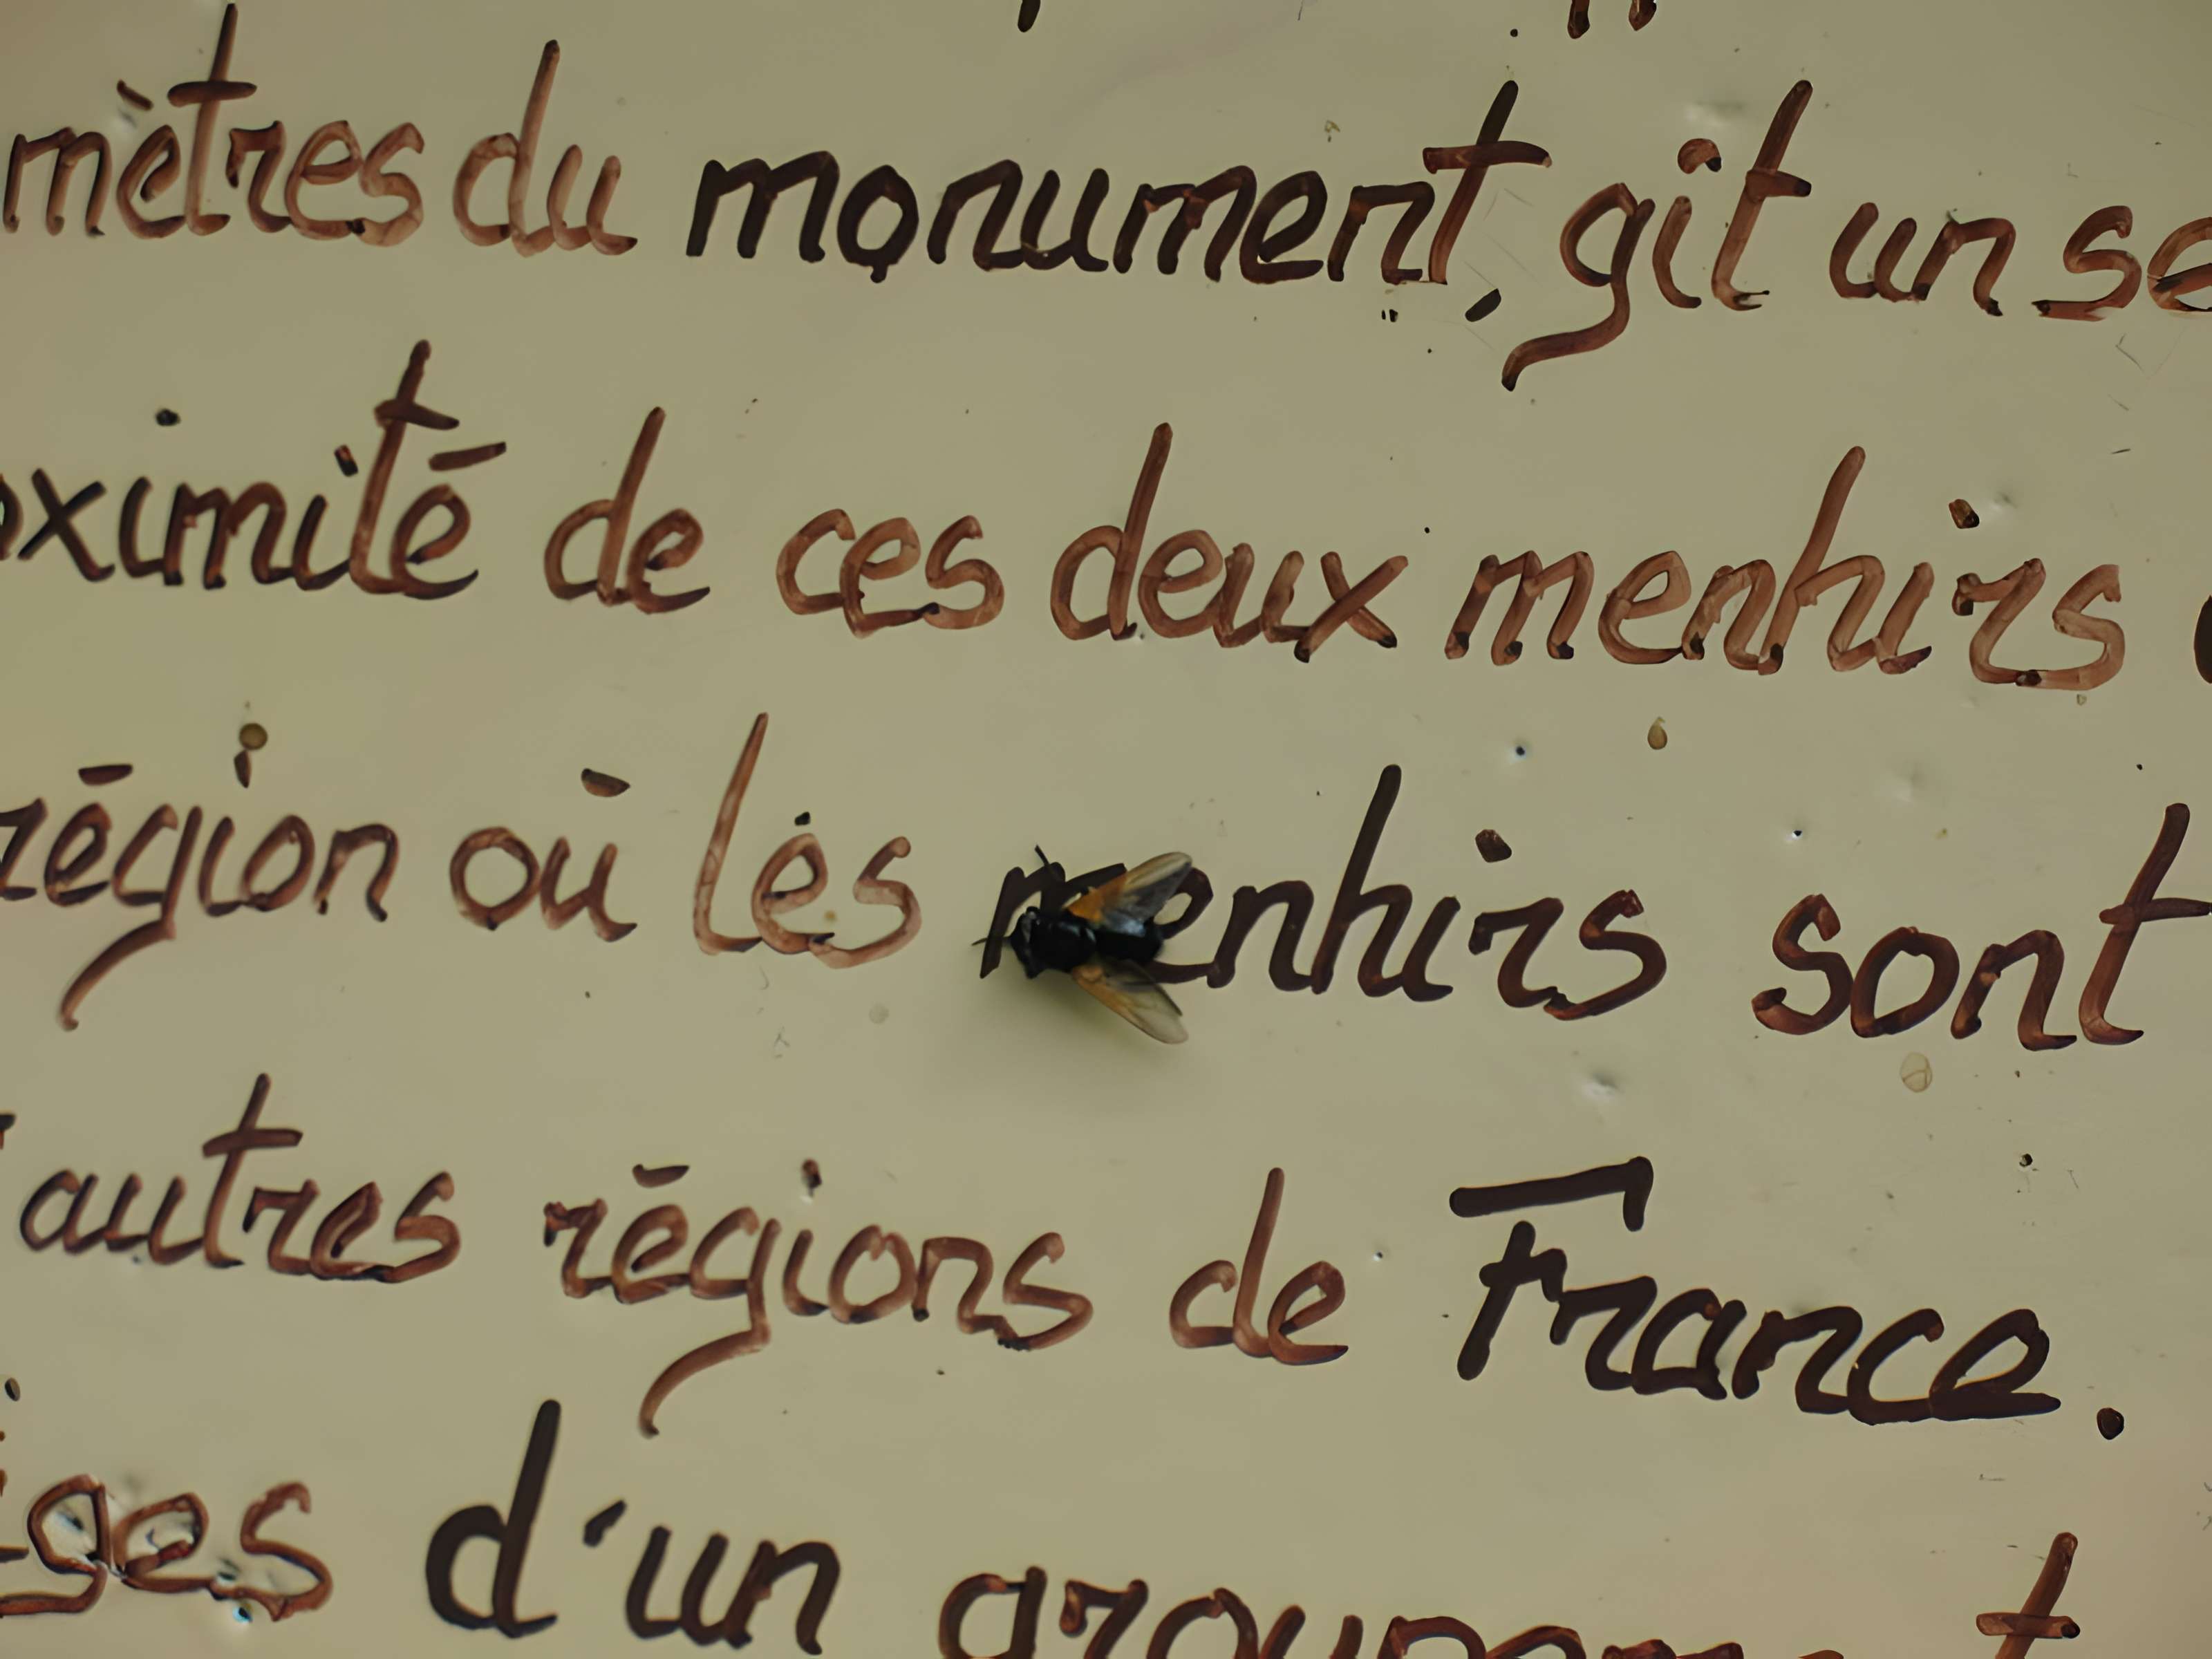 mètres du monument, gît un se
oximité de ces deux menhirs
région où les menhirs sont
autres régions de France.
ges d'un groupement